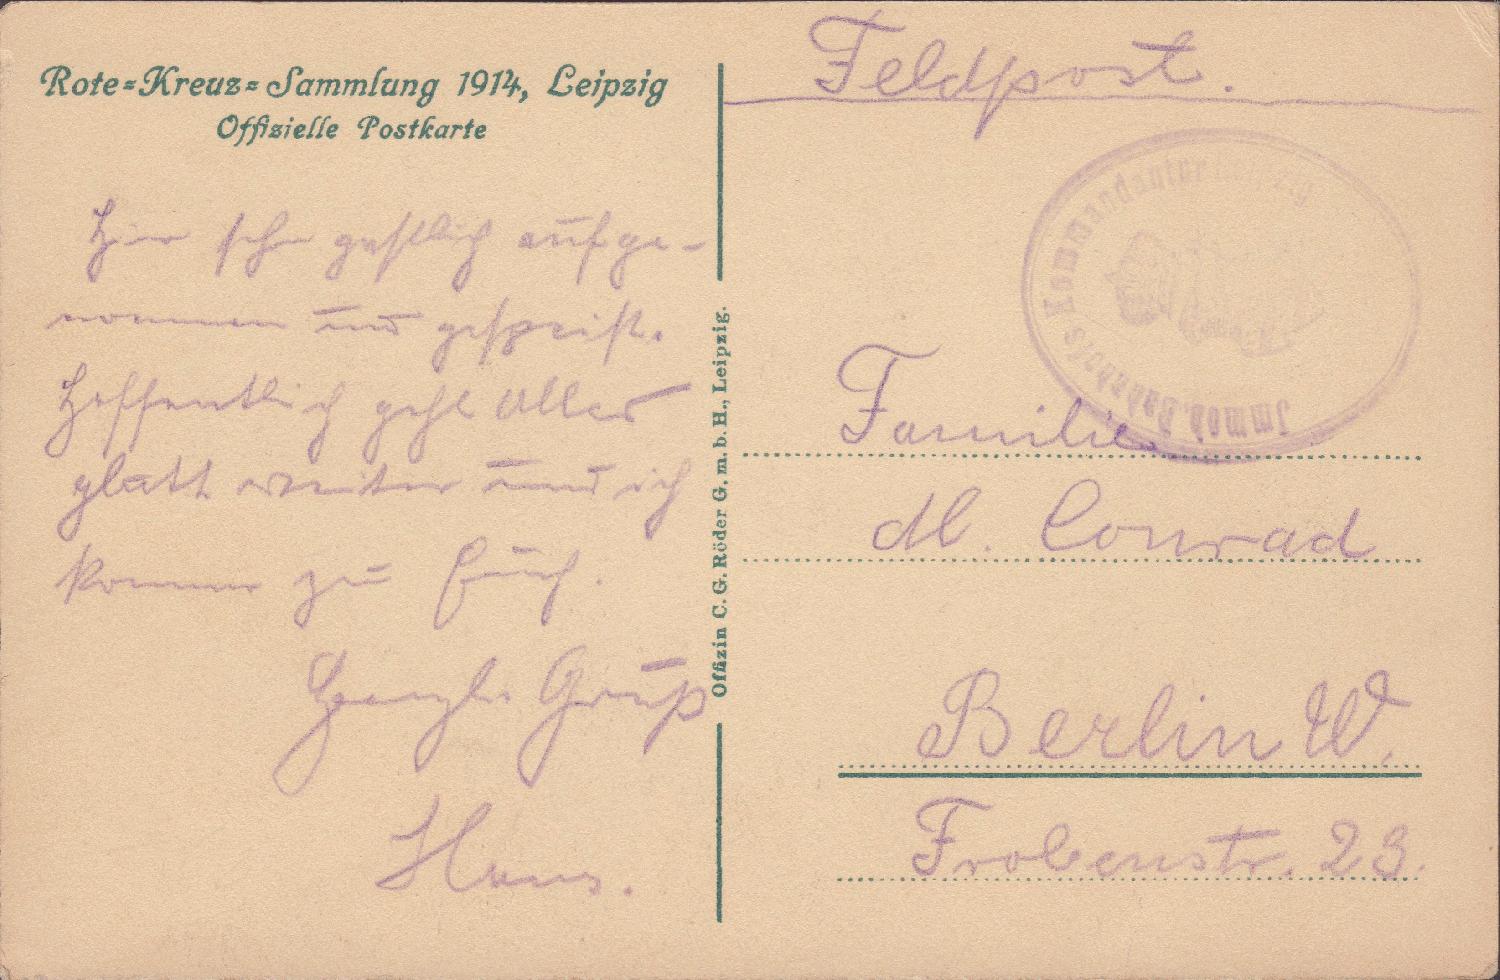 Rote-Kreuz-Sammlung 1914, Leipzig
Offizielle Postkarte
Hier sehr gastlich aufge-
nommen und gespeist.
Hoffentlich geht Alles
glatt weiter und ich
komme zu Euch.
Herzl. Gruß
Hans.
Offizin C. G. Röder G. m. b. H., Leipzig.
Feldpost.
Immob. Bahnhofs Kommandantur Leipzig
Familie
M. Conrad
Berlin W.
Frobenstr. 23.